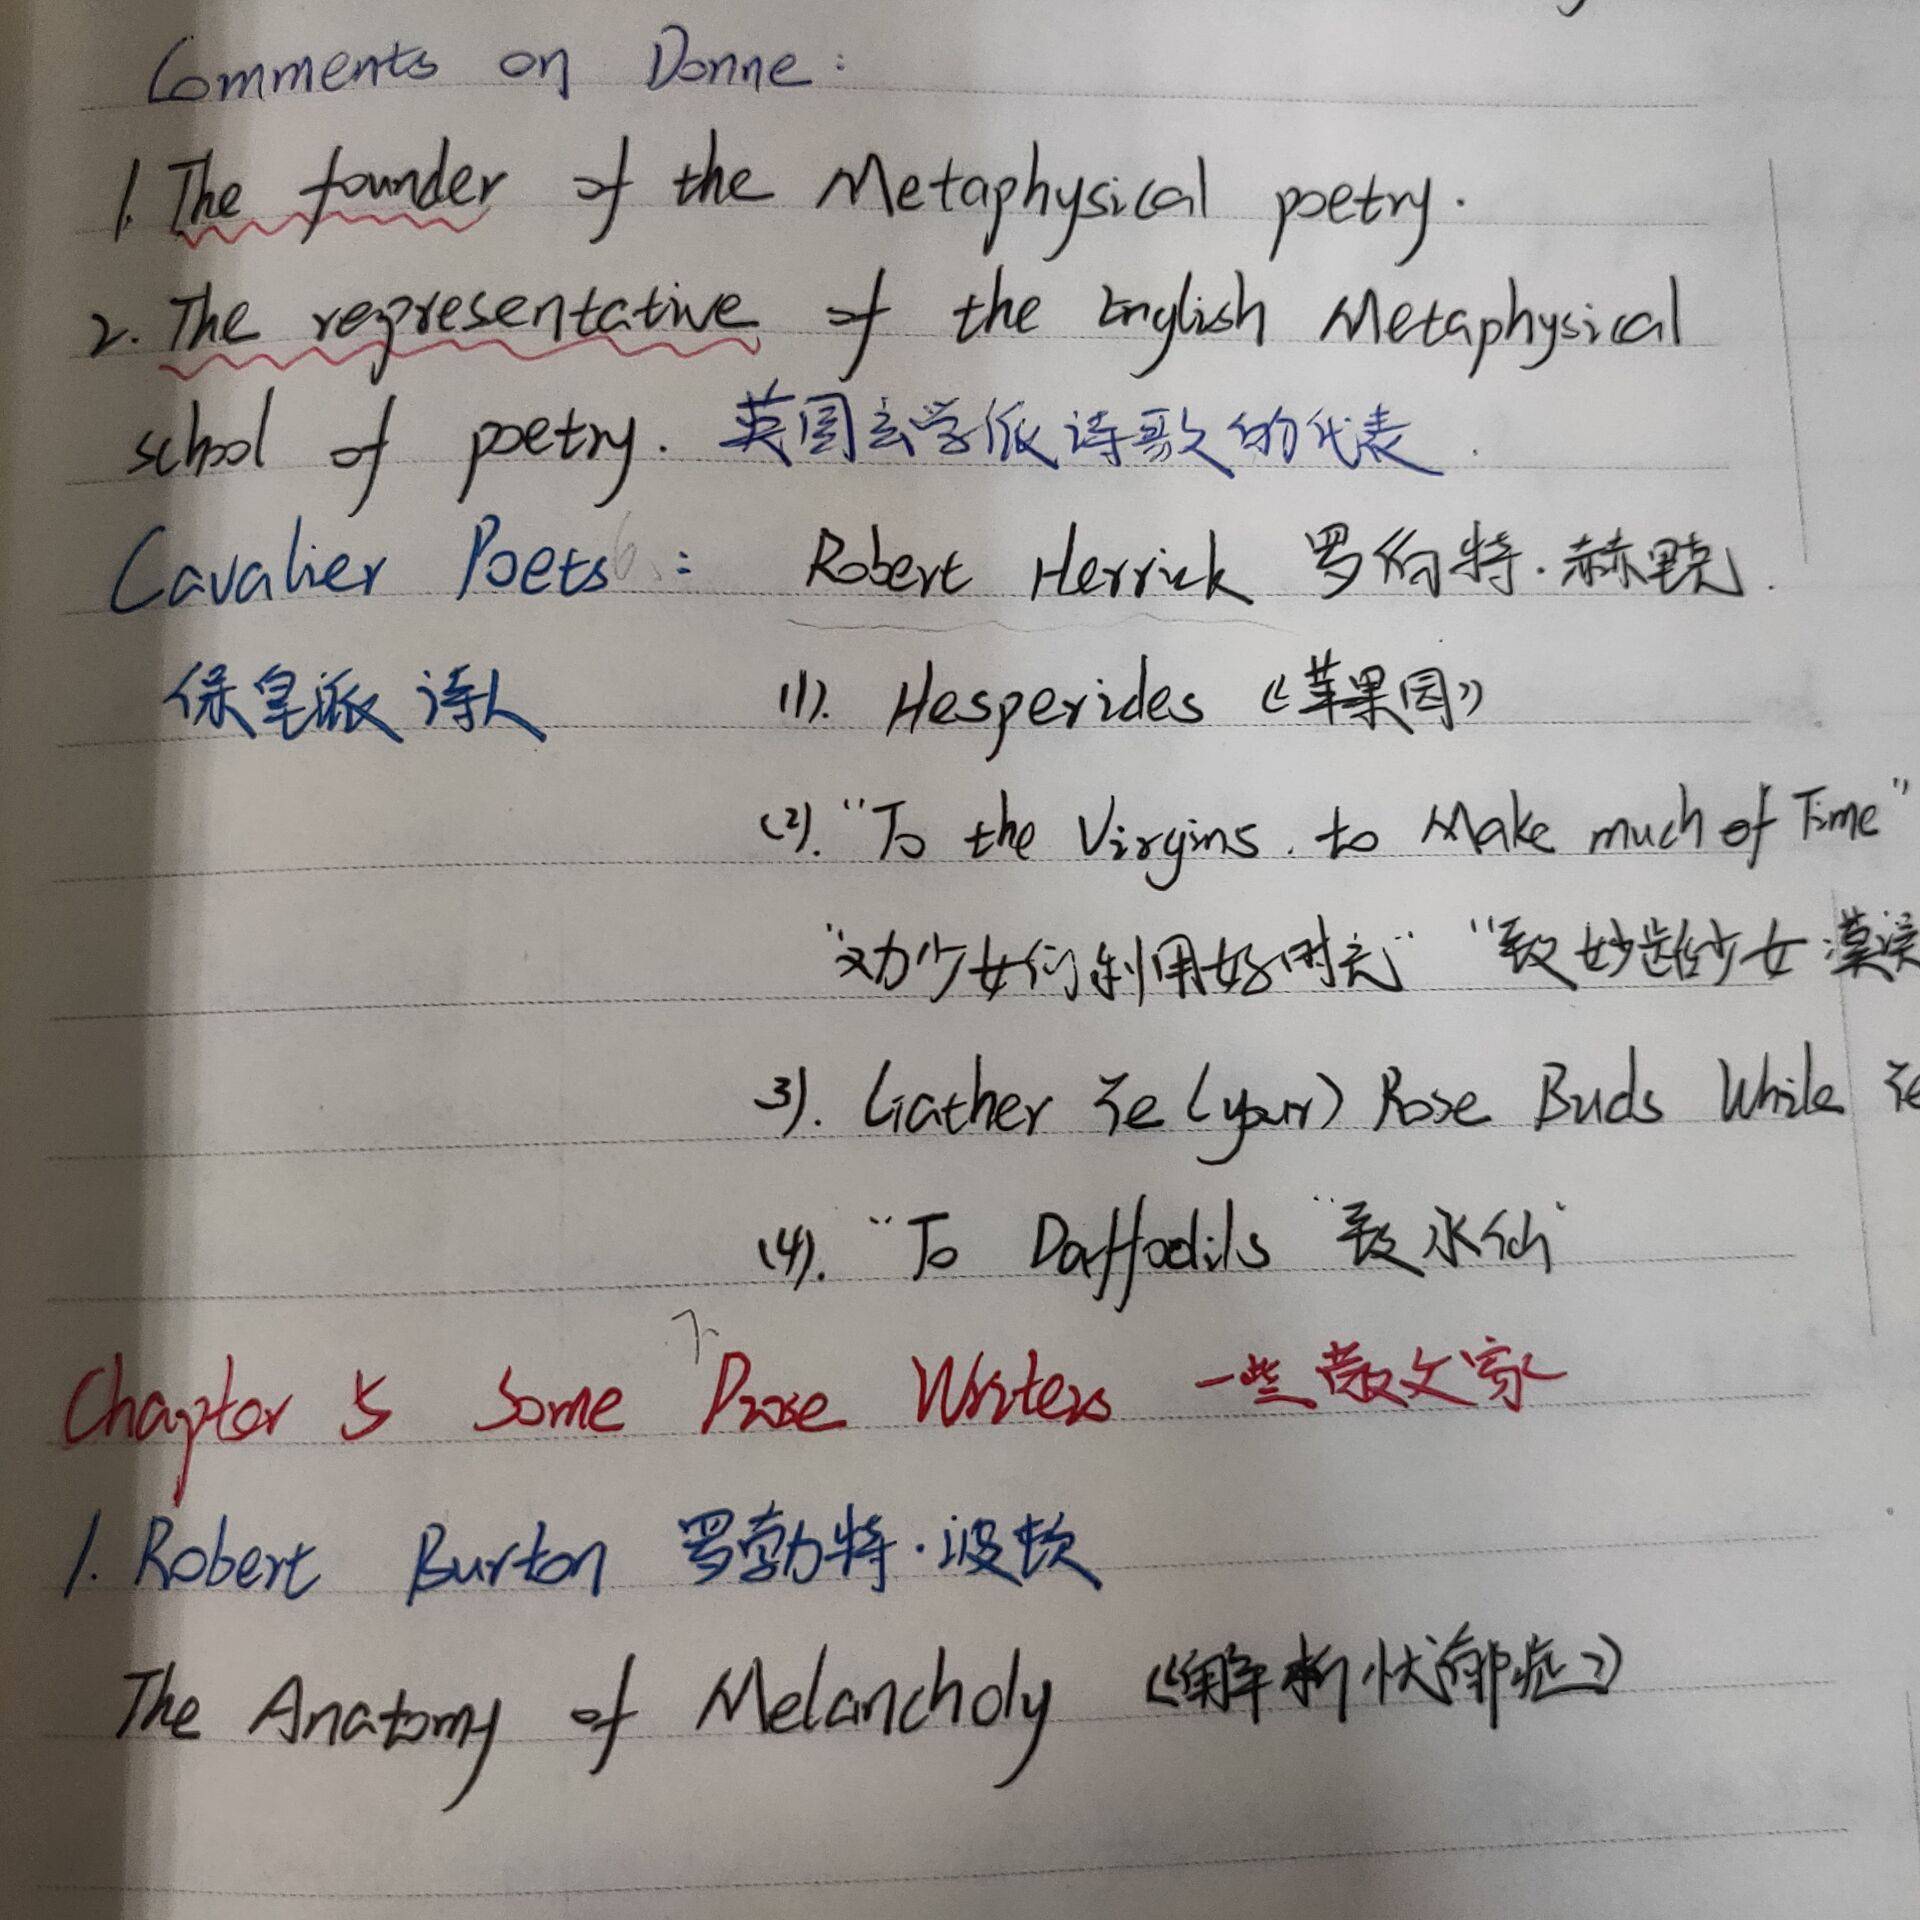 Comments on Donne:
1. The founder of the Metaphysical poetry.
2. The representative of the English Metaphysical
school of poetry. 英国玄学派诗歌的代表.
Cavalier Poets: Robert Herrick 罗伯特·赫里克.
保皇派诗人 (1). Hesperides《苹果园》
(2). "To the Virgins. to Make much of Time"
"劝少女们利用好时光" "致妙龄少女:莫误
3). Gather Ye (your) Rose Buds While Ye
(4). "To Daffodils "致水仙"
Chapter 5 Some Prose Writers 一些散文家
1. Robert Burton 罗勃特·波顿
The Anatomy of Melancholy《解析忧郁症》